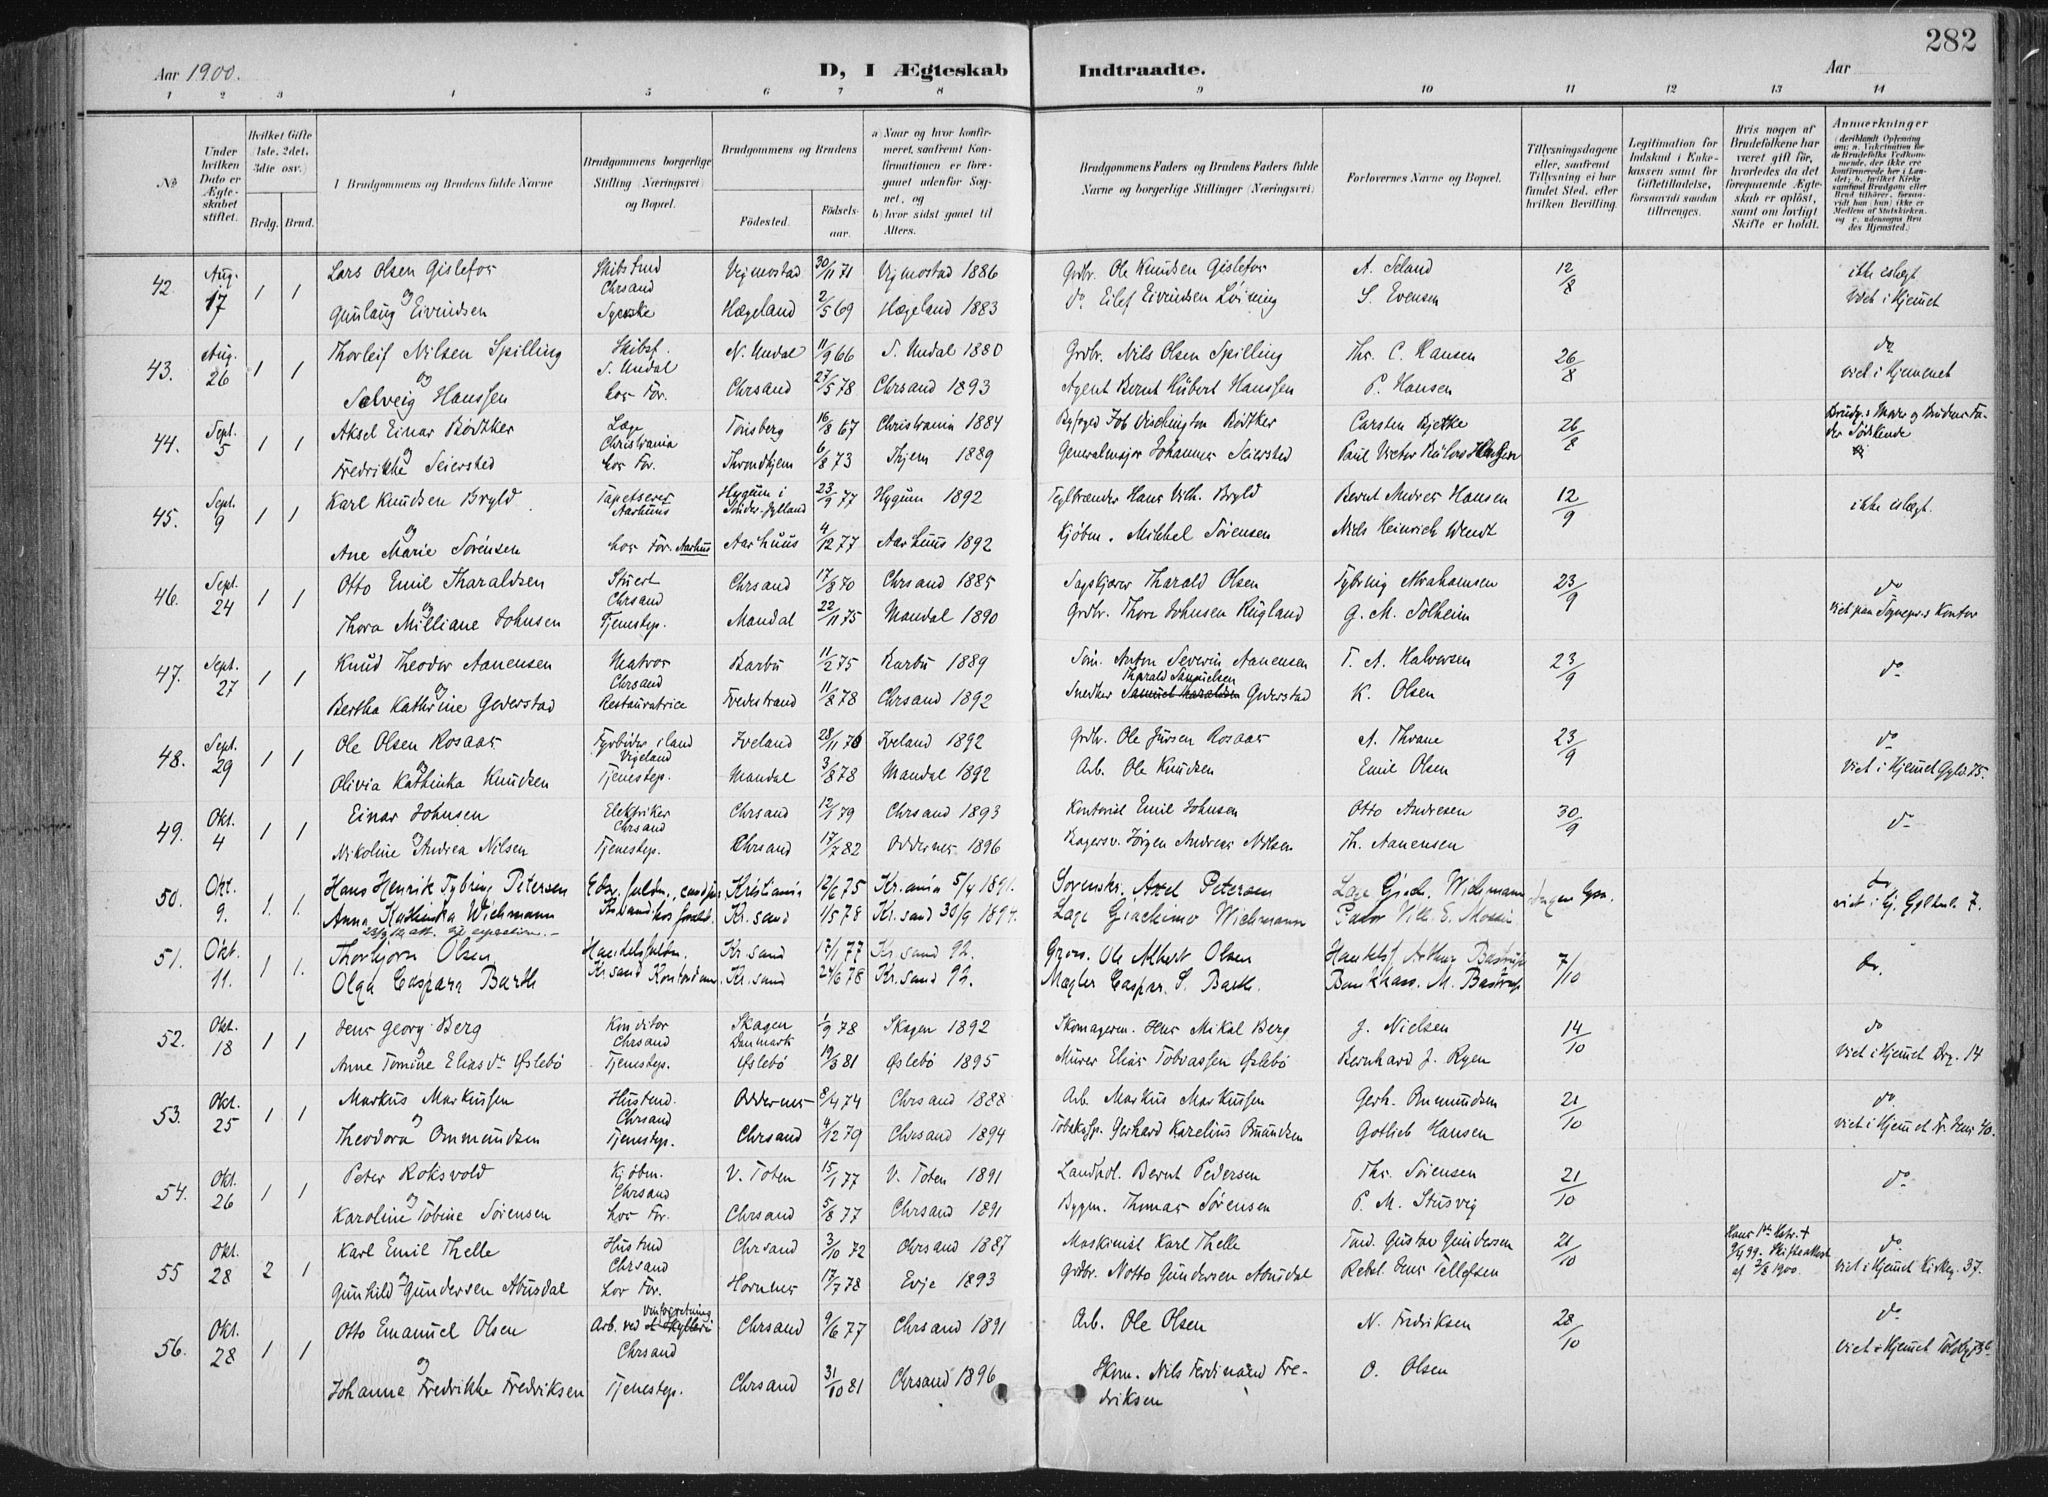 282
Aar 1900.
D, I Ægteskab Indtraadte.
Aar
1 2 3 4 5 6 7 8 9 10 11 12 13 14
No
Under hvilken Dato er Ægteskabet stiftet.
Hvilket Gifte (1ste, 2det, 3die osv.)
Brdg. Brud.
I Brudgommens og Brudens fulde Navne
Brudgommens borgerlige Stilling (Næringsvei) og Bopæl.
Brudgommens og Brudens
Födested. Födselsaar.
a) Naar og hvor konfirmeret, saafremt Konfirmationen er foregaaet udenfor Sognet, og
b) hvor sidst gaaet til Alters.
Brudgommens Faders og Brudens Faders fulde Navne og borgerlige Stillinger (Næringsvei)
Forlovernes Navne og Bopæl.
Tillysningsdagene eller, saafremt Tillysning ei har fundet Sted, efter hvilken Bevilling.
Legitimation for Indskud i Enkekassen samt for Giftetilladelse, forsaavidt saadan tiltrænges.
Hvis nogen af Brudefolkene har været gift før, hvorledes da det foregaaende Ægteskab er opløst, samt om lovligt Skifte er holdt.
Anmerkninger
42. Aug. 17 1 1 Lars Olsen Gislefos Skibstmd Chrsand Vigmostad 30/11 71 Vigmostad 1886 Grdbr. Ole Knudsen Gislefos A. Seland 12/8 ikke eslægt
og Gunlaug Eivindsen Syerske Hægeland 2/5 69 Hægeland 1883 do Eilef Eivindsen Løining S. Evensen viet i Hjemmet
43. Aug. 26 1 1 Thorleif Nilsen Spilling Skibsf. S. Undal N. Undal 11/9 66 S. Undal 1880 Grdbr. Nils Olsen Spilling Thr. C. Hansen 26/8 do
og Solveig Hanssen hos For. Chrsand 27/5 78 Chrsand 1893 Agent Bernt Hubert Hanssen P. Hansen viet i Hjemmet
44. Sept. 5 1 1 Aksel Einar Bødtker Læge Christiania Tønsberg 16/8 67 Christiania 1884 Byfoged Job Dischington Bødtker Carsten Bjerke 26/8 Brudg.s Moder og Brudens Fader Sødskende
og Fredrikke Seiersted hos For. Throndhjem 6/8 73 Thjem 1889 Generalmajor Johannes Seiersted Paul Victor Bülow Hansen
45. Sept. 9 1 1 Karl Knudsen Bryld Tapetserer Aarhuus Hygum i Sönder-Jylland 23/9 77 Hygum 1892 Teglbrænder Hans Vilh. Bryld Bernt Andreas Hansen 12/9 ikke eslægt.
og Ane Marie Sørensen hos For. Aarhus Aarhuus 4/12 77 Aarhuus 1892 Kjøbm. Mikkel Sørensen Niels Heinrich Wendt
46. Sept. 24 1 1 Otto Emil Tharaldsen Stuert Chrsand Chrsand 17/8 70 Chrsand 1885 Sagskjærer Tharald Olsen Tybring Abrahamsen 23/9 do
og Thora Milliane Johnsen Tjenestep. Mandal 22/11 75 Mandal 1890 Grdbr. Thore Johnsen Rugland G. M. Solheim viet paa Sognepr.s Kontor
47. Sept. 27 1 1 Knud Theodor Aanensen Matros Chrsand Barbu 11/2 75 Barbu 1889 Søm. Anton Severin Aanensen T. A. Halvorsen 23/9 do
og Bertha Kathrine Goderstad Restauratrice Tvedestrand 11/8 78 Chrsand 1892 Snedker Tharald Samuelsen Goderstad K. Olsen
48. Sept. 29 1 1 Ole Olsen Rosaas Fyrbøder i land Vigeland Iveland 28/11 76 Iveland 1892 Grdbr. Ole Jursen Rosaas A. Thoane 23/9 do
og Olivia Kathinka Knudsen Tjenestep. Mandal 3/8 78 Mandal 1892 Arb. Ole Knudsen Emil Olsen viet i Hjemmet Gyld. 75.
49. Okt. 4 1 1 Einar Johnsen Elektriker Chrsand Chrsand 12/1 79 Chrsand 1893 Kontorist Emil Johnsen Otto Andresen 30/9 do
og Nikoline Andrea Nilsen Tjenestep. Chrsand 17/7 82 Oddernes 1896 Bagersv. Jørgen Andreas Nilsen Th. Aanensen
50. Okt. 9. 1. 1. Hans Henrik Tybring Petersen Kristiania 12/6 75 Kr.ania 5/4 1891. Sorenskr. Axel Petersen Læge Gjoch. Wichmann Ingen Lysn. do.
Anna Kathinka Wichmann Kr.sand hos foræld. Kr.sand 1/5 78 Kr.sand 30/9 1894. Læge Giachimo Wichmann Pastor Vilh. E. viet i Hj. Gyldenl. 7.
51. Okt. 11. 1 1. Thorbjørn Olsen Handelsfuldm. Kr.sand 17/1 77 Kr.sand 92. Ole Albert Olsen Handelsf. Arthur Bastrup 7/10 do.
Olga Caspara Barth Kr.sand Kontordame Kr.sand 24/6 78 Kr.sand 92. Mægler Caspar S. Barth. Bankkass. M. Bastrup
52. Okt. 18 1 1 Jens Georg Berg Konditor Chrsand Skagen Danmark 1/9 78 Skagen 1892 Skomagerm. Jens Mikal Berg J. Nielsen 14/10 do
og Anne Tomine Eliasdr Øslebö Tjenestep. Øslebö 19/3 81 Øslebö 1895 Murer Elias Tobiassen Øslebö Bernhard J. Ryen viet i Hjemmet Drg. 14
53. Okt. 25 1 1 Markus Markussen Hustmd. Chrsand Oddernes 8/4 74 Chrsand 1888 Arb. Markus Markussen Gerh. Ommundsen 21/10 do
og Theodora Ommundsen Tjenestep. Chrsand 4/12 79 Chrsand 1894 Tobaksfp. Gerhard Karelius Omundsen Gotlieb Hansen viet i Hjemmet Kr. Jens 40.
54. Okt. 26 1 1 Peter Roksvold Kjöbm. Chrsand V. Toten 15/1 77 V. Toten 1891 Landhdl. Bernt Pedersen Thr. Sørensen 21/10 do
og Karoline Tobine Sørensen hos For. Chrsand 5/8 77 Chrsand 1891 Bygm. Thomas Sørensen P. M. Stusvig
55 Okt. 28 2 1 Karl Emil Thelle Hustmd Chrsand Chrsand 3/10 72 Chrsand 1887 Maskinist Karl Thelle Gustav Gundersen 21/10 Hans 1ste Hstr. + 9/4 99. Skifteattest af 2/8 1900. do
og Gunhild Gundersen Abusdal hos For. Hornnes 17/7 78 Evje 1893 Grdbr. Notto Gundersen Abusdal Rebsl. Jens Tellefsen viet i Hjemmet Kirkeg. 37.
56. Okt. 28 1 1 Otto Emanuel Olsen Arb. ved vinforretning Chrsand Chrsand 9/6 77 Chrsand 1891 Arb. Ole Olsen N. Fredriksen 28/10 do
og Johanne Fredrikke Fredriksen Tjenestep. Chrsand 31/10 81 Chrsand 1896 Skom. Nils Ferdinand Fredriksen O. Olsen viet i Hjemmet